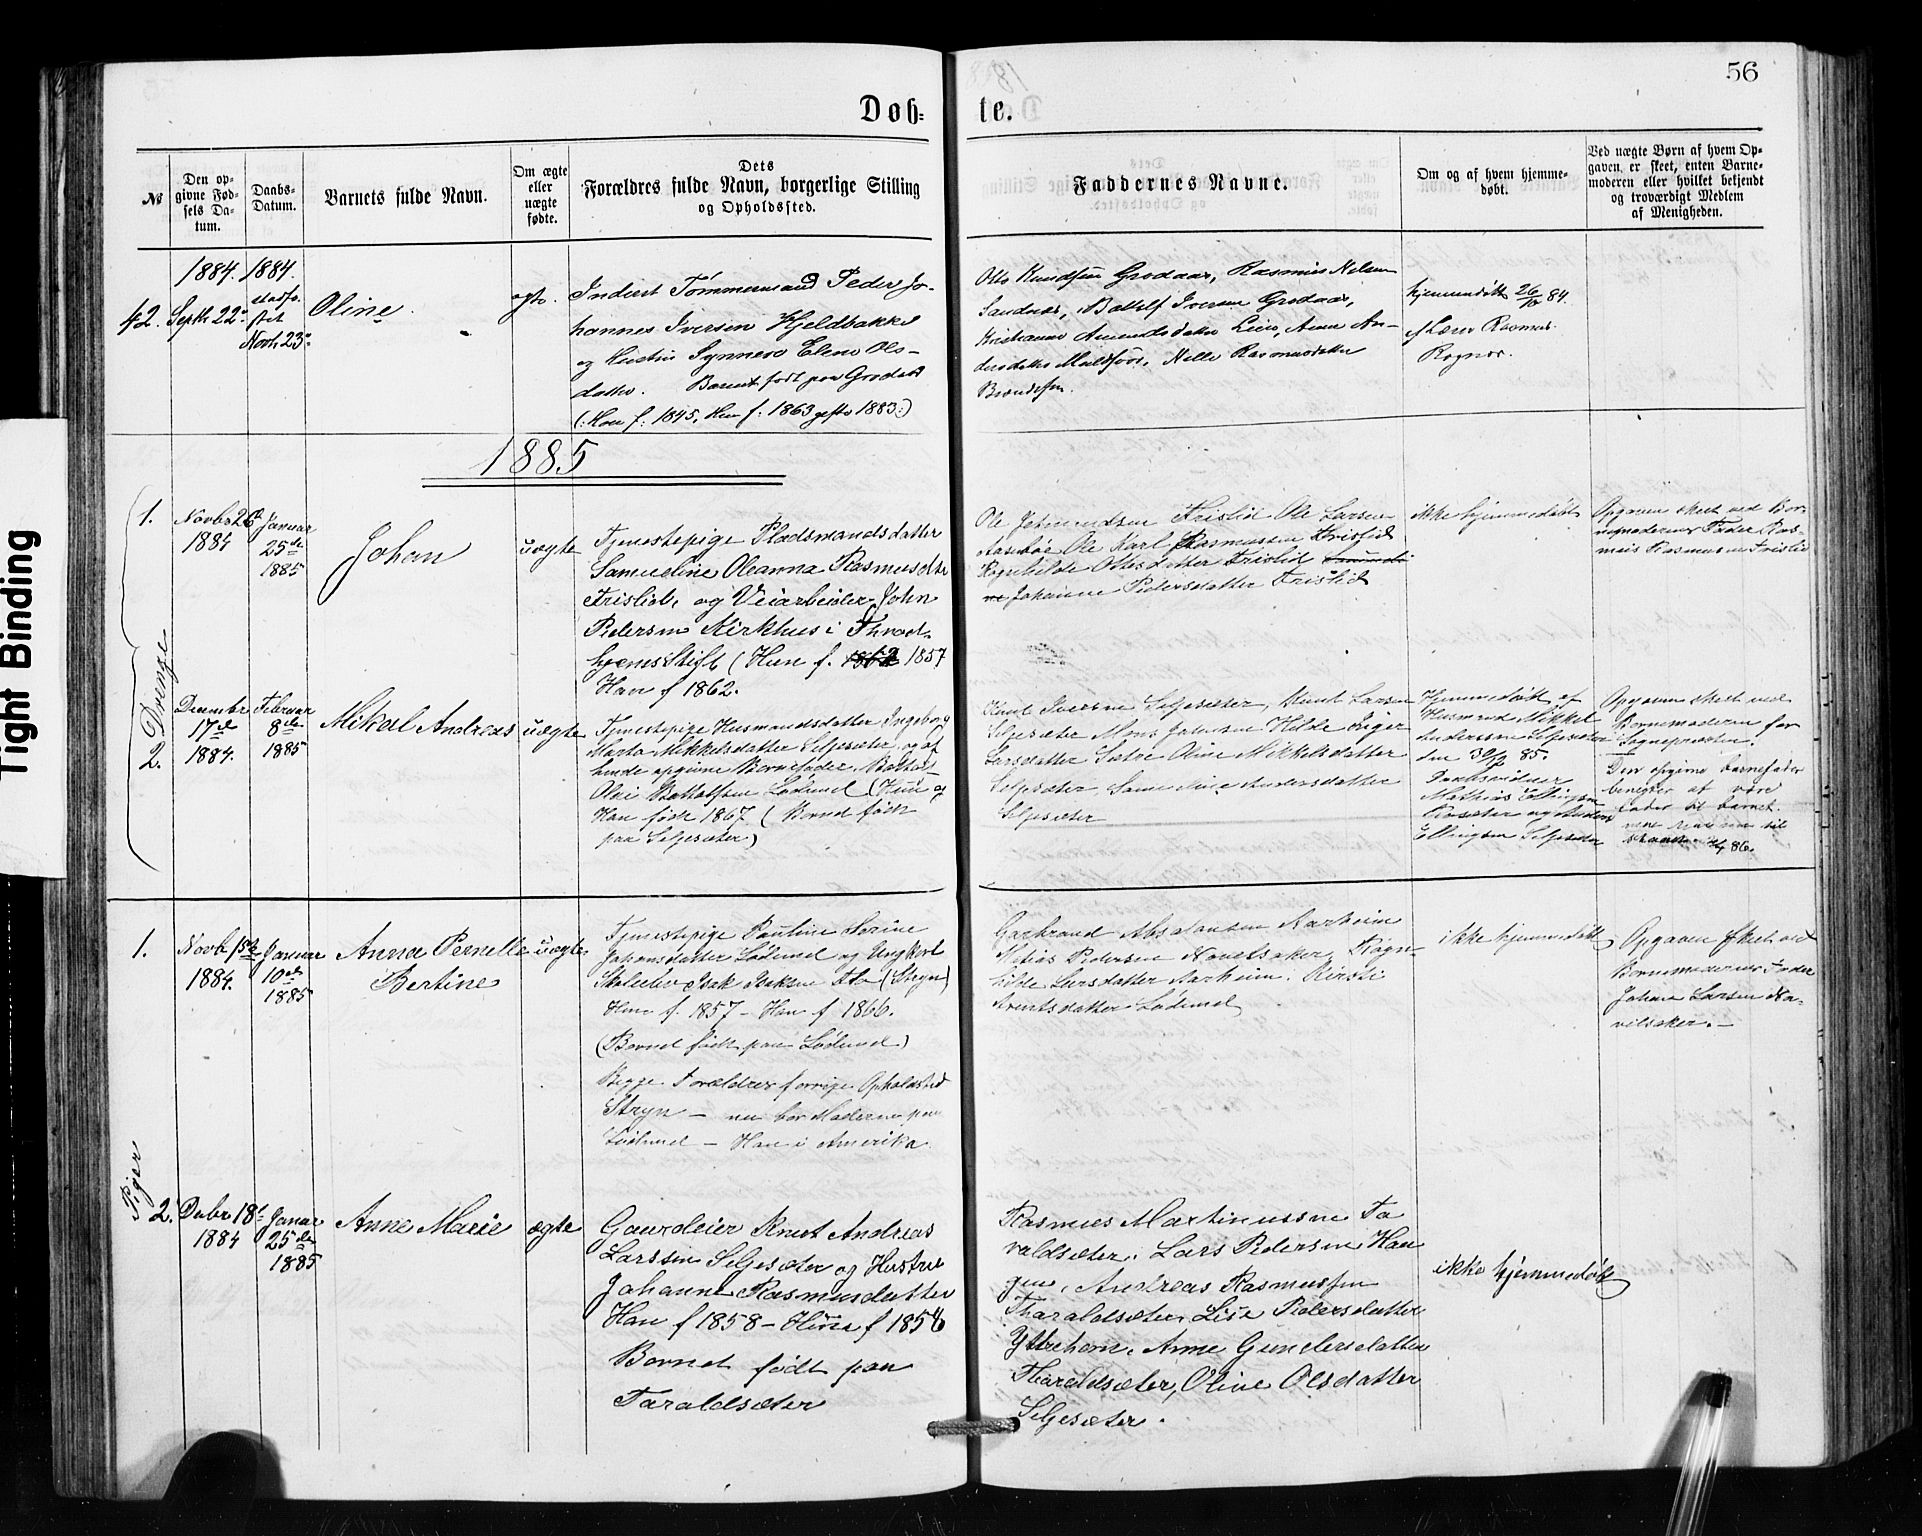 56
Døb-
te.
№
Den op-
givne Fød-
sels Da-
tum.
Daabs-
Datum.
Barnets fulde Navn.
Om ægte
eller
uægte
fødte.
Dets
Forældres fulde Navn, borgerlige Stilling
og Opholdssted.
Faddernes Navne.
Om og af hvem hjemme-
døbt.
Ved uægte Børn af hvem Op-
gaven er skeet, enten Barne-
moderen eller hvilket betjendt
og troværdigt Medlem
af Menigheden.
42.
1884.
Septb. 22
1884.
stadfæ-
stet
Novb. 23
Oline.
ægte.
Inderst Tømmermand Peder Jo-
hannes Iversen Hjeldbakke
og Hustru Synneve Elene Ols-
datter. Barnet født paa Grodaas
(: Han f. 1845, Hun f. 1863 gifte 1883 :)
Otto Knudsen Grodaas, Rasmus Nilsen
Sandnes, Bottolf Iversen Grodaas,
Kristianne Amundsdatter Leire, Anne An-
dersdatter Maldfoss, Nille Rasmusdatter
hjemmedøbt 26/10 84.
af Lærer Rasmus
Rognes.
1885
Drenge
1.
Novbr 26
1884
Januar
25de
1885
Johan
uægte
Tjenestepige Pladsmandsdatter
Samueline Oleanna Rasmusdtr
Frislid, og Veiarbeider John
Pedersen Kirkhus i Thrond-
hjems Stift (Hun f. 1862 1857
Han f 1862.
Ole Johannessen Frislid Ole Larsen
Aasebøe Ole Karl Rasmussen Frislid
Ragnhilde Ottesdatter Frislid
Johanne Pedersdatter Frislid
ikke hjemmedøbt
Opgaven skeet ved Bar-
nemoderens Fader Ras-
mus Rasmussen Frislid
2.
December
17de
1884.
Februar
8de
1885
Mikael Andreas
uægte
Tjenestepige Husmandsdatter Ingeborg
Marta Mikkelsdatter Seljesæter, og af
hende opgivne Barnefader Bottolf
Olai Bottolfsen Lødemel (Hun og
Han født 1867 (Barnet født
paa Seljesæter)
Knut Iversen Seljesæter, Knut Larsen
Seljesæter Mons Jakobsen Hilde Inger
Larsdatter Sætre Oline Mikkelsdatter
Seljesæter Andersdatter
Seljesæter
Hjemmedøbt af
Husmand Mikkel
Anderssen Seljesæter
den 30/12 85.
Daabsvidner
Mathias Ellingsen
Raasæter og Anders
Ellingsen Seljesæter
Opgaven skeet ved
Barnemoderen for
Sognepræsten.
Den opgivne barnefader
benegter at være
fader til barnet
86.
Piger
1.
Novb 15de
1884.
Januar
10de
1885
Anna Pernelle
Bertine
uægte
Tjenestepige Pauline Serine
Johansdatter Lødemel og Ungkarl
Isak Isaksen (Stryn)
Hun f. 1857 – Han f 1866.
(Barnet født paa Lødemel)
Begge Forældres forrige Opholdsted
Stryn – nu bor Moderen paa
Lødemel – Han i Amerika.
Garbrand Absalonsen Aarheim
Matias Pedersen Navelsaker Ragn-
hilde Larsdatter Aarheim. Kirsti
Arntsdatter Lødemel
ikke hjemmedøbt
Opgaven skeet ved
Barnemoderens Fader
Johan Larsen Na-
velsaker. –
2.
Decbr 18de
1884
Januar
25de
1885
Anne Marie
ægte
Gaardeier Knut Andreas
Larssen Seljesæter og Hustru
Johanne Rasmusdatter
Han f 1858 – Hun f 1858
Barnet født paa
Taraldsæter
Rasmus Martinussen Ta
raldsæter. Lars Pedersen Hau
gen. Andreas Rasmussen
Tharaldsæter, Lise Pedersdatter
Ytrehorn. Anne Gundersdatter
Tharaldsæter, Oline Olsdatter
Seljesæter.
ikke hjemmedøbt
Tight Binding